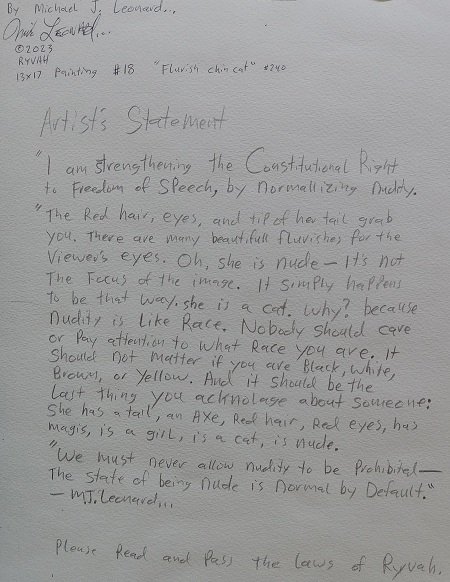 By Michael J. Leonard...
Mich Leonard...
©2023
RYVAH
13x17 Painting #18 "Fluvish chin cat" #240
Artist's Statement
"I am strengthening the Constitutional Right
to Freedom of Speech, by normallizing Nudity.
"The Red hair, eyes, and tip of her tail grab
you. There are many beautifull fluvishes for the
viewer's eyes. Oh, she is nude — It's not
The Focus of the image. It simply happens
to be that way. she is a cat. why? because
Nudity is Like Race. Nobody should care
or Pay attention to what Race you are. It
should not matter if you are Black, White,
Brown, or Yellow. And it should be the
Last thing you acknolage about someone:
She has a tail, an AXe, Red hair, Red eyes, has
magis, is a girl, is a cat, is nude.
"We must never allow nudity to be Prohibital—
The state of being Nude is Normal by Default."
— M.J. Leonard...
Please Read and Pass the Laws of Ryvah.